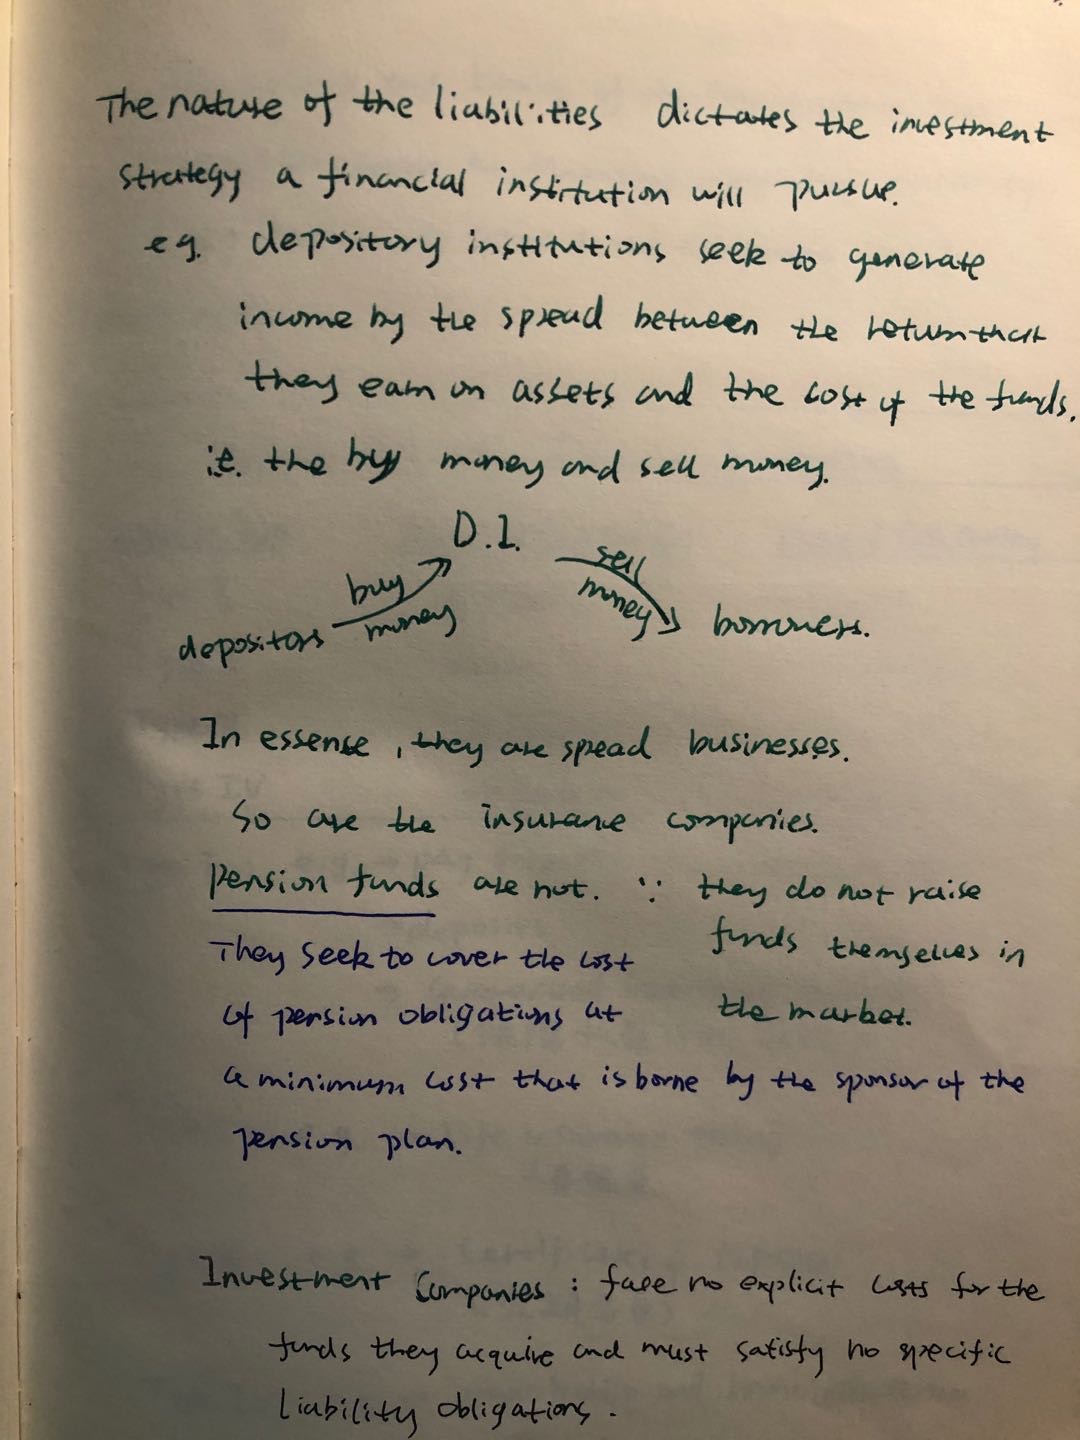 The nature of the liabilities dictates the investment
strategy a financial institution will pursue.
eg. depository institutions seek to generate
income by the spread between the return that
they earn on assets and the cost of the funds.
i.e. the buy money and sell money.
D.I.
depositors buy money
sell money borrowers.
In essense, they are spread businesses.
So are the insurance companies.
Pension funds are not. ∵ they do not raise
funds themselves in
the market.
They seek to cover the cost
of pension obligations at
a minimum cost that is borne by the sponsor of the
pension plan.
Investment Companies : face no explicit costs for the
funds they acquire and must satisfy no specific
liability obligations.